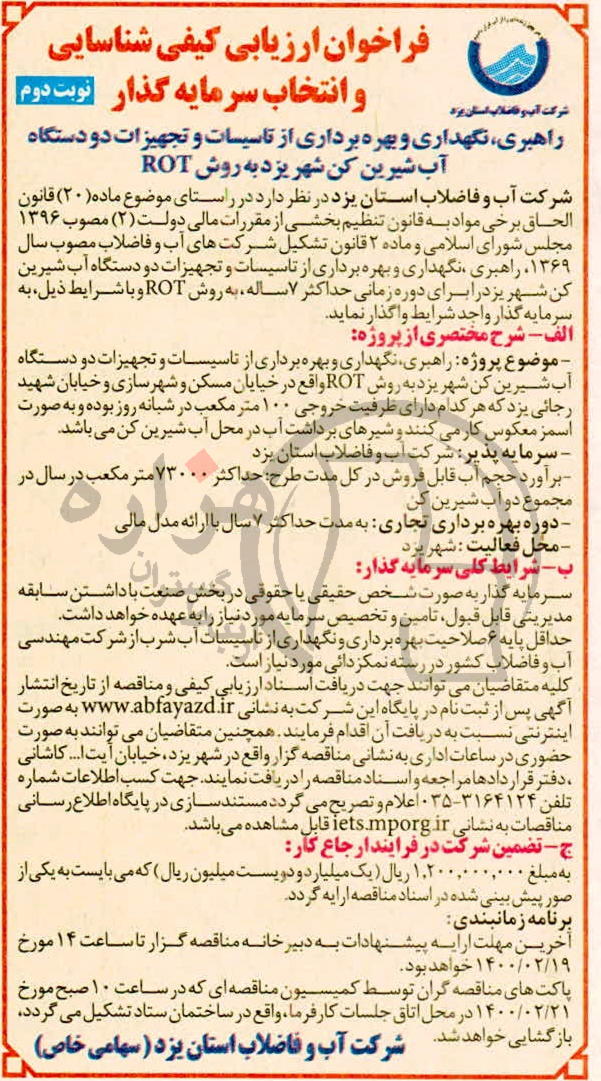 فراخوان ارزیابی کیفی شناسایی
و انتخاب سرمایه گذار
نوبت دوم
شرکت آب و فاضلاب استان یزد
راهبری، نگهداری و بهره برداری از تاسیسات و تجهیزات دو دستگاه
آب شیرین کن شهر یزد به روش ROT
شرکت آب و فاضلاب استان یزد در نظر دارد در راستای موضوع ماده (۲۰) قانون
الحاق برخی مواد به قانون تنظیم بخشی از مقررات مالی دولت (۲) مصوب ۱۳۹۶
مجلس شورای اسلامی و ماده ۲ قانون تشکیل شرکت های آب و فاضلاب مصوب سال
۱۳۶۹، راهبری ،نگهداری و بهره برداری از تاسیسات و تجهیزات دو دستگاه آب شیرین
کن شهر یزد را برای دوره زمانی حداکثر ۷ساله ، به روش ROT و با شرایط ذیل، به
سرمایه گذار واجد شرایط واگذار نماید.
الف- شرح مختصری از پروژه:
- موضوع پروژه: راهبری، نگهداری و بهره برداری از تاسیسات و تجهیزات دو دستگاه
آب شیرین کن شهر یزد به روش ROT واقع در خیابان مسکن و شهرسازی و خیابان شهید
رجائی یزد که هر کدام دارای ظرفیت خروجی ۱۰۰ متر مکعب در شبانه روز بوده و به صورت
اسمز معکوس کار می کنند و شیرهای برداشت آب در محل آب شیرین کن می باشد.
- سرمایه پذیر: شرکت آب و فاضلاب استان یزد
- برآورد حجم آب قابل فروش در کل مدت طرح: حداکثر ۷۳۰۰۰ متر مکعب در سال در
مجموع دو آب شیرین کن
- دوره بهره برداری تجاری: به مدت حداکثر ۷ سال با ارائه مدل مالی
- محل فعالیت : شهر یزد
ب- شرایط کلی سرمایه گذار:
سرمایه گذار به صورت شخص حقیقی یا حقوقی در بخش صنعت با داشتن سابقه
مدیریتی قابل قبول، تامین و تخصیص سرمایه مورد نیاز را به عهده خواهد داشت.
حداقل پایه ۶ صلاحیت بهره برداری و نگهداری از تاسیسات آب شرب از شرکت مهندسی
آب و فاضلاب کشور در رسته نمکزدائی مورد نیاز است.
کلیه متقاضیان می توانند جهت دریافت اسناد ارزیابی کیفی و مناقصه از تاریخ انتشار
آگهی پس از ثبت نام در پایگاه این شرکت به نشانی www.abfayazd.ir به صورت
اینترنتی نسبت به دریافت آن اقدام فرمایند . همچنین متقاضیان می توانند به صورت
حضوری در ساعات اداری به نشانی مناقصه گزار واقع در شهر یزد، خیابان آیت ا... کاشانی
،دفتر قراردادها مراجعه و اسناد مناقصه را دریافت نمایند. جهت کسب اطلاعات شماره
تلفن ۳۱۶۴۱۲۴-۰۳۵ اعلام و تصریح می گردد مستندسازی در پایگاه اطلاع رسانی
مناقصات به نشانی iets.mporg.ir قابل مشاهده می باشد.
ج- تضمین شرکت در فرایند ارجاع کار:
به مبلغ ۱,۲۰۰,۰۰۰,۰۰۰ ریال (یک میلیارد و دویست میلیون ریال) که می بایست به یکی از
صور پیش بینی شده در اسناد مناقصه ارایه گردد.
برنامه زمانبندی:
آخرین مهلت ارایه پیشنهادات به دبیرخانه مناقصه گزار تا ساعت ۱۴ مورخ
۱۴۰۰/۰۲/۱۹ خواهد بود.
پاکت های مناقصه گران توسط کمیسیون مناقصه ای که در ساعت ۱۰ صبح مورخ
۱۴۰۰/۰۲/۲۱ در محل اتاق جلسات کارفرما، واقع در ساختمان ستاد تشکیل می گردد،
بازگشایی خواهد شد.
شرکت آب و فاضلاب استان یزد ( سهامی خاص )
هزاره